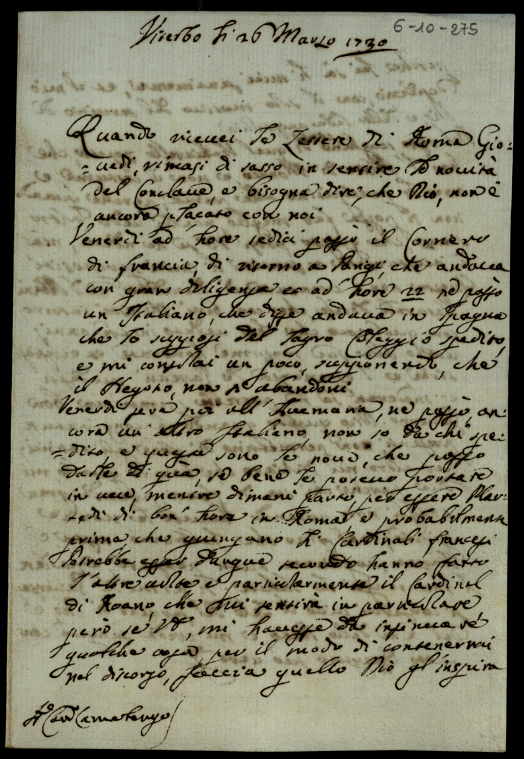 6-10-275
Viterbo li 26 Marzo 1730
Quando ricevei le lettere di Roma Gio-
=vedi, rimasi di sasso in sentire le novità
del Conclave, e bisogna dire, che Dio, non è
ancora placato con noi
Venerdi ad' hore sedici passò il Corriero
di francia, di ritorno a Parigi che andava
con gran diligenza et ad' hore 22 ne passò
un Italiano, che disse andava in Spagna
che lo supposi dal Sagro Colleggio spedito,
e mi consolai un poco, supponendo, che
il Negotio, non s' abandoni
Venerdi sera poi all' Avemaria, ne passò an-
cora un altro Italiano, non so da chi spe-
=dito, e queste sono le nove, che posso
darle di quà, se bene le potevo portare
in voce, mentre dimani parto, per essere Mar-
tedi di bon' hora in Roma, e probabilmente
prima che giungano li Cardinali francesi
Potrebbe esser dunque secondo hanno fatto
l'altre volte e particolarmente il Cardinal
di Roano che lui sentirà in particolare
però se VE, mi havesse da insinuare
qualche cosa per il modo di contenermi
nel discorso, faccia quello Dio gl'inspira
Camarlengo